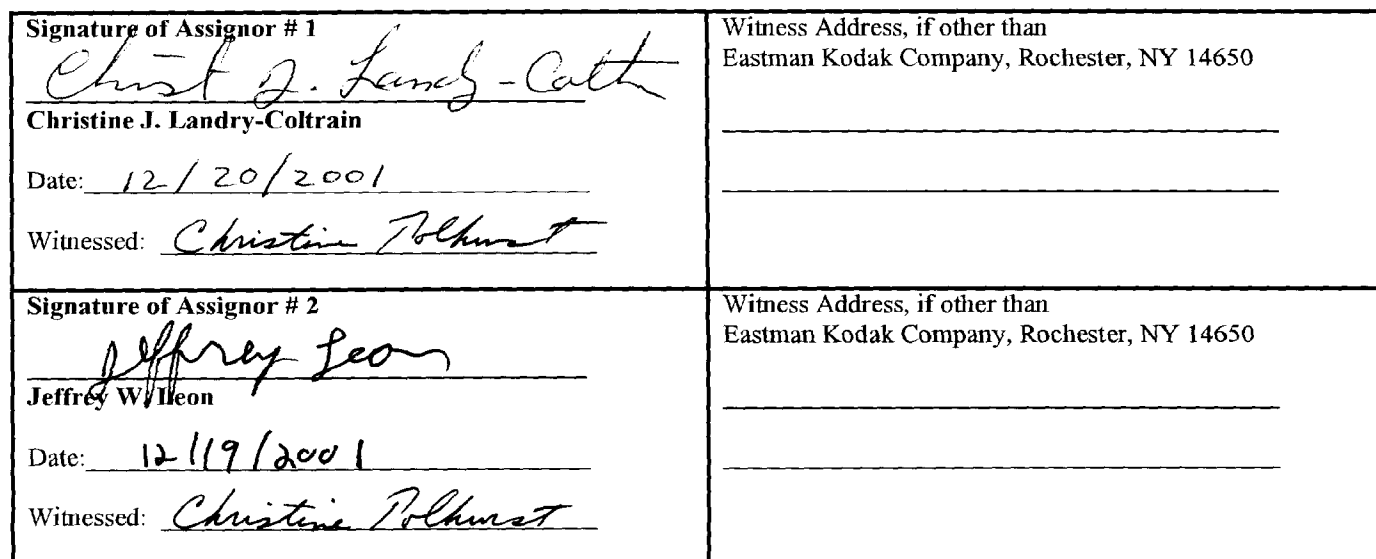 Signature of Assignor # 1
Christ J. Landry-Colt
Christine J. Landry-Coltrain
Date: 12/20/2001
Witnessed: Christine Polhurst
Witness Address, if other than
Eastman Kodak Company, Rochester, NY 14650
Signature of Assignor # 2
Jeffrey Leon
Jeffrey W. Leon
Date: 12/19/2001
Witnessed: Christine Polhurst
Witness Address, if other than
Eastman Kodak Company, Rochester, NY 14650